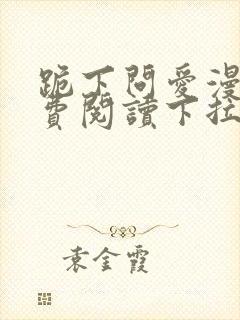 跪下問愛漫
費閱讀下拉
袁金霞